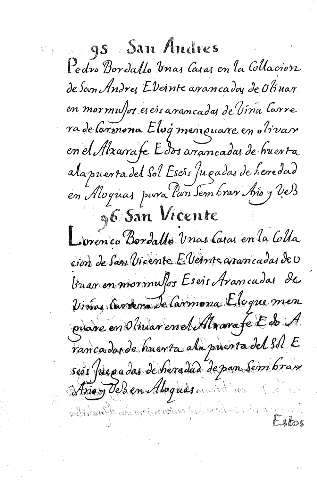 95 San Andres
Pedro Bordallo Unas Casas en la Collacion
de San Andres E Veinte arancadas de Olivar
en mormujos e seis arancadas de Viña Carre
ra de Carmona E loq menguare en olivar
en el Alxarafe E dos arancadas de huerta
a la puerta del Sol E seis Jugadas de heredad
en Aloquas para Pan Sembrar Año y Veb
96 San Vicente
Lorenco Bordallo Unas Casas en la Colla
cion de San Vicente E Veinte arancadas de O
livar en mormujos E seis Arancadas de
Viñas Carrera de Carmona E lo que men
guare en Olivar en el Alxarafe E do A
rancadas de huerta a la puerta del Sol E
seis Jugadas de heredad de pan Sembrar
Año y Veb en Aloques
Estos